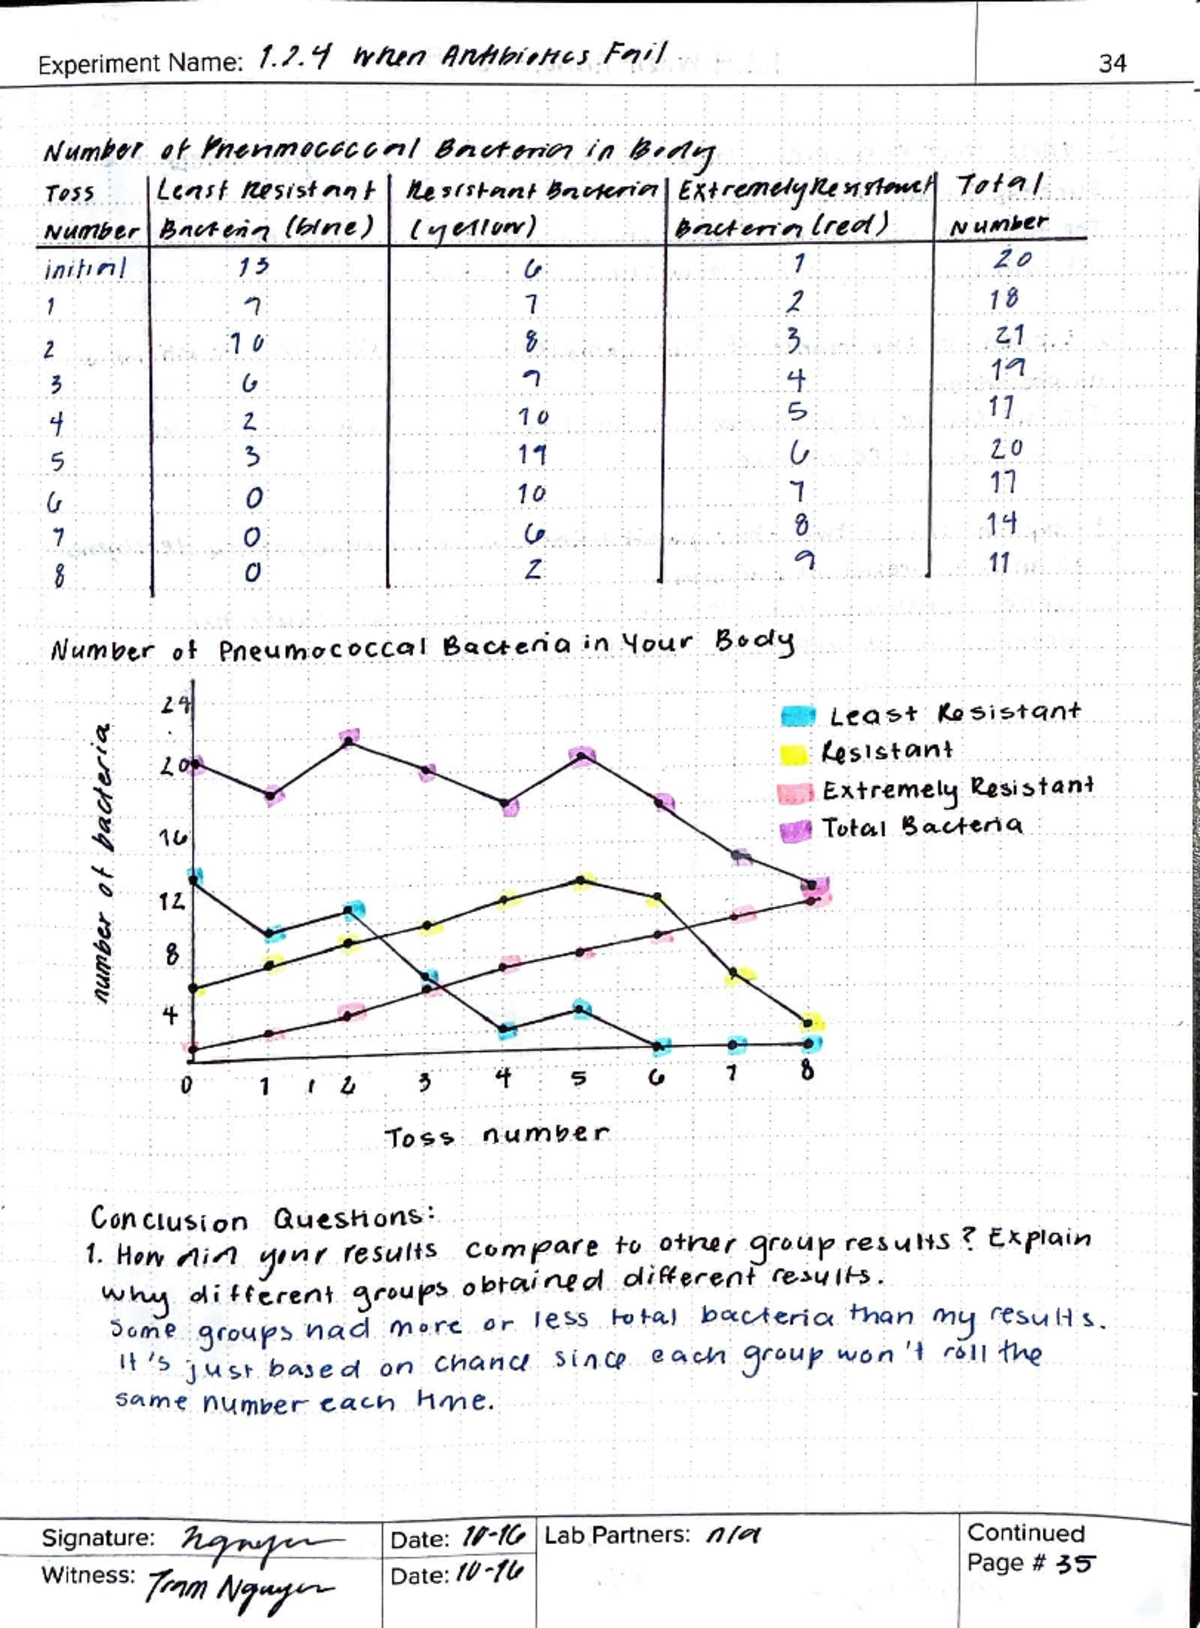 Experiment Name: 1.2.4 When Antibiotics Fail 34
Number of Pneumococcal Bacteria in Body
Toss Least Resistant Resistant Bacteria Extremely Resistant Total
Number Bacteria (blue) (yellow) Bacteria (red) Number
initial 13 6 1 20
1 9 7 2 18
2 10 8 3 21
3 6 9 4 19
4 2 10 5 17
5 3 11 6 20
6 0 10 7 17
7 0 6 8 14
8 0 2 9 11
Number of Pneumococcal Bacteria in Your Body
number of bacteria
24
20
16
12
8
4
0 1 2 3 4 5 6 7 8
Toss number
Least Resistant
Resistant
Extremely Resistant
Total Bacteria
Conclusion Questions:
1. How did your results compare to other group results? Explain
why different groups obtained different results.
Some groups had more or less total bacteria than my results.
It's just based on chance since each group won't roll the
same number each time.
Signature: Nguyen Date: 10-16 Lab Partners: n/a Continued
Witness: Tram Nguyen Date: 10-16 Page # 35